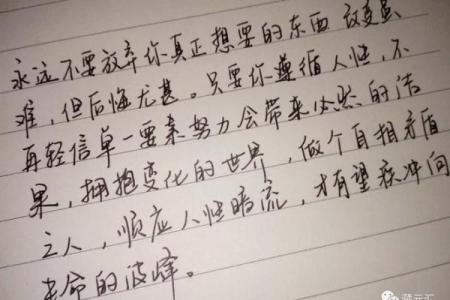 永远不要放弃你真正想要的东西 改变虽
难，但后悔尤甚。只要你遵循人性，不
再轻信单一要素努力会带来必然的结
果，拥抱变化的世界，做个自相矛盾
之人，顺应人性暗流，才有望被冲向
生命的波峰。